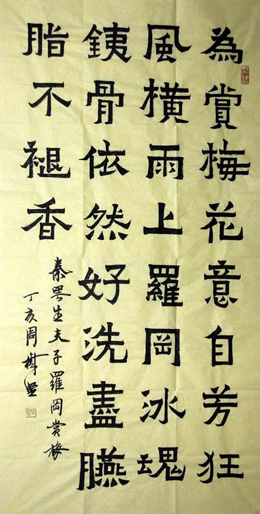 為賞梅花意自芳狂
風橫雨上羅岡冰魂
銕骨依然好洗盡臙
脂不褪香
秦咢生夫子羅岡賞梅
丁亥周樹堅